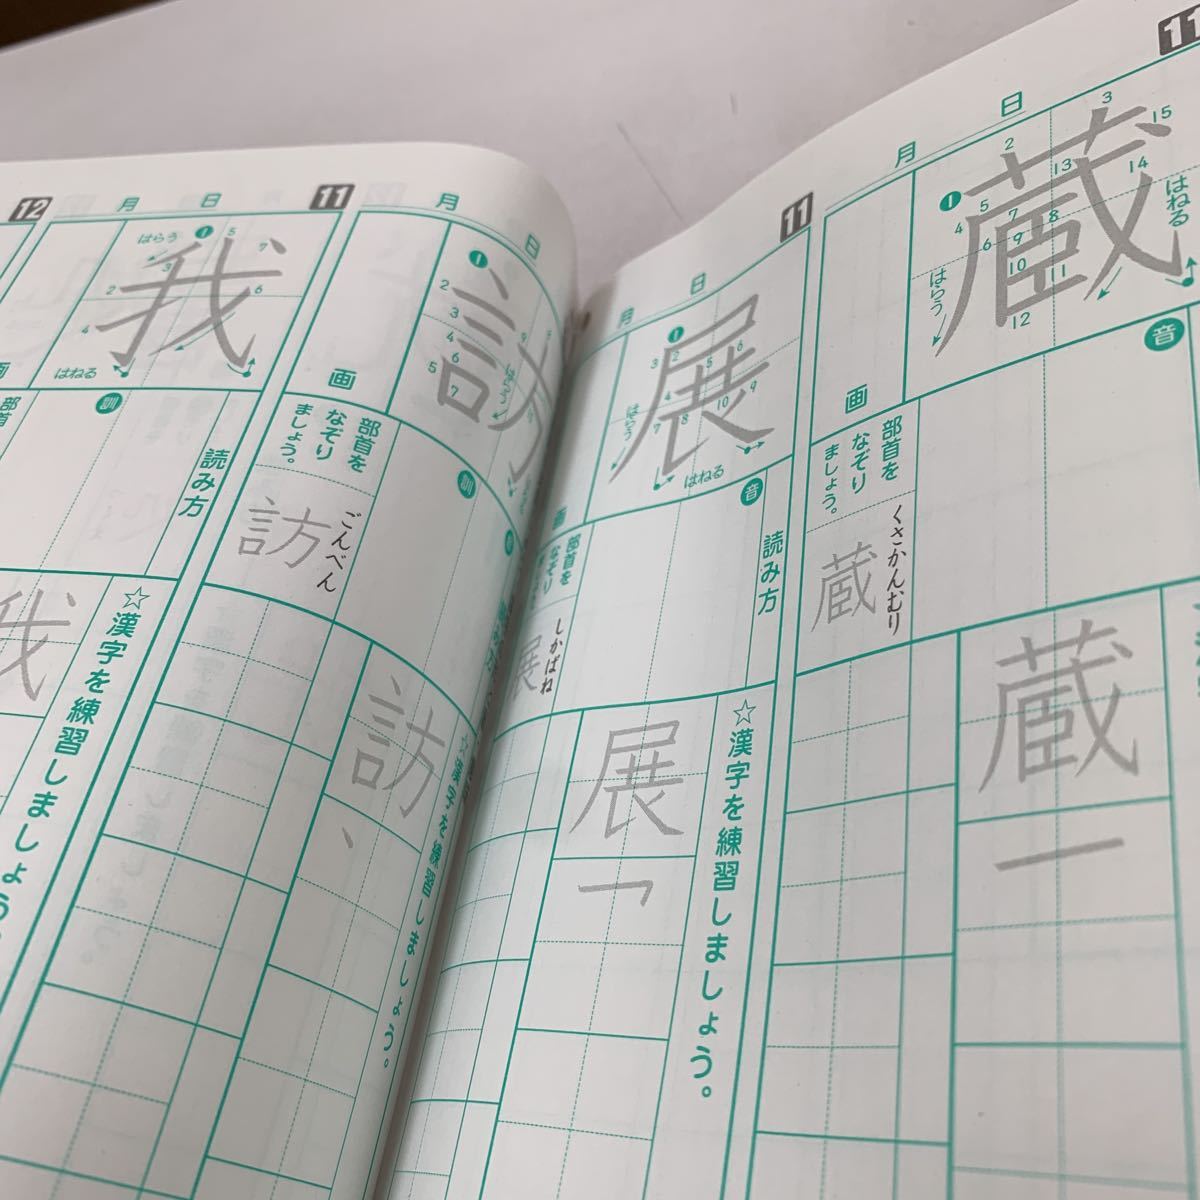 11
月 日
蔵
1 2 3 4 5 6 7 8 9 10 11 12 13 14 15
はねる
はらう
音
画
部首を
なぞり
ましょう。
くさかんむり
蔵
蔵
一
11
月 日
展
1 2 3 4 5 6 7 8 9 10
はらう
はねる
読み方
音
画
部首を
なぞり
しかばね
展
☆漢字を練習しましょう。
展
11
月 日
訪
1 2 3 4 5 6 7
訓
画
部首を
なぞり
ましょう。
ごんべん
訪
☆漢字を練習しましょう。
訪
12
月 日
我
はらう
1 2 3 4 5 6 7
はねる
読み方
訓
画
部首
☆漢字を練習しましょう。
我